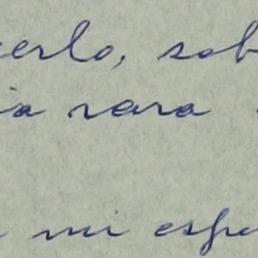 erlo, sob
ia rara
mi espe